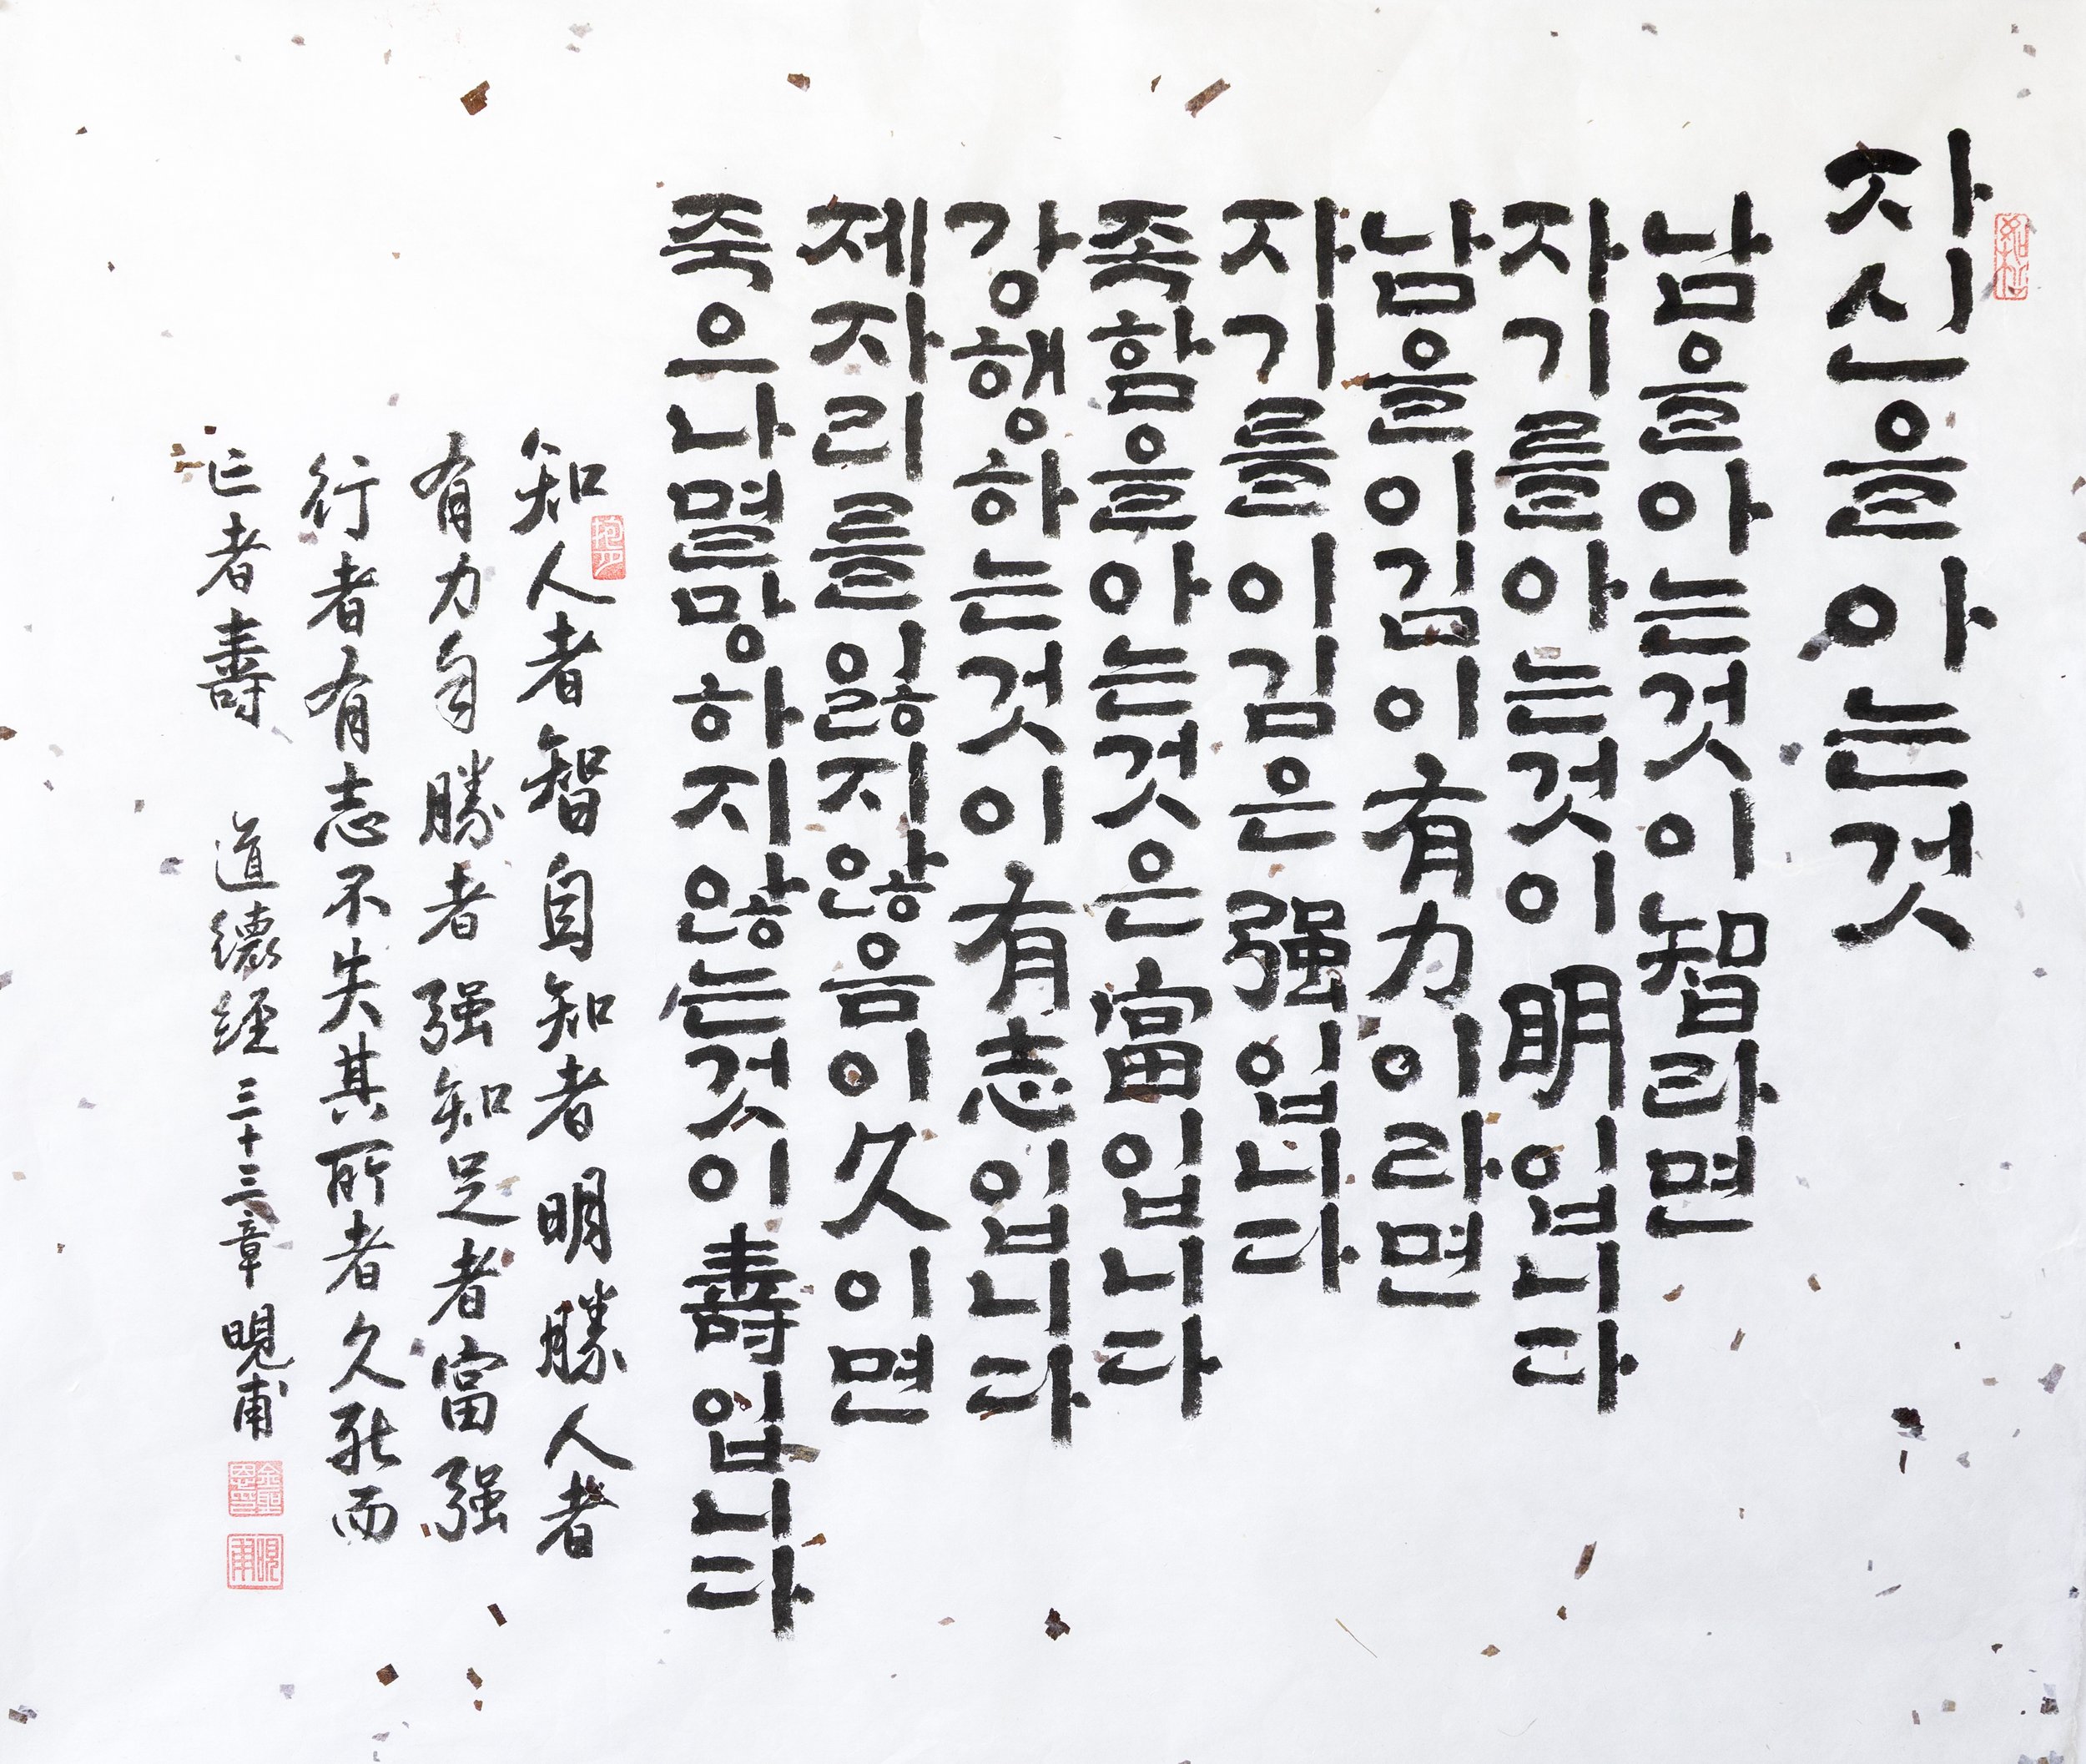 자신을 아는 것
남을 아는 것이 智라면
자기를 아는 것이 明입니다
남을 이김이 有力이라면
자기를 이김은 强입니다
족함을 아는 것은 富입니다
강행하는 것이 有志입니다
제자리를 잃지 않음이 久이면
죽으나 멸망하지 않는 것이 壽입니다
知人者智自知者明勝人者
有力自勝者强知足者富强
行者有志不失其所者久死而
亡者壽 道德經三十三章 晛甫